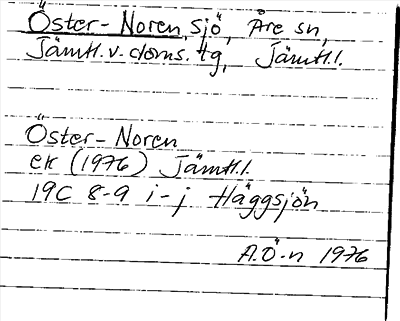 Öster-Noren, sjö, Åre sn,
Jämtl. v. doms. tg, Jämtl. l.
Öster-Noren
ek (1976) Jämtl. l.
19C 8-9 i-j Häggsjön
A.Ö-n 1976